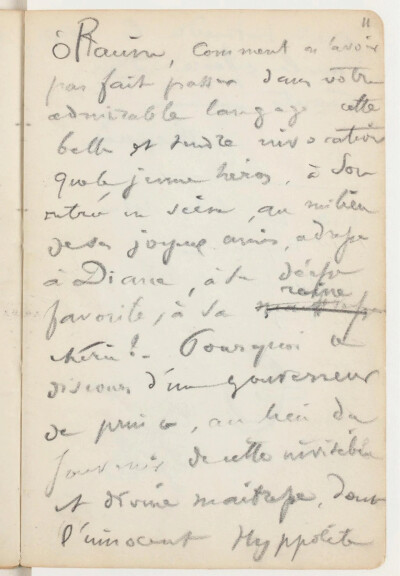 11
ô Racine, comment n'avoir
pas fait passer dans votre
admirable langage cette
belle et tendre invocation
que le jeune héros, à son
entrée en scène, au milieu
de ses joyeux amis, adresse
à Diane, à sa déesse
favorite, à sa reine
chérie! - Pourquoi ce
discours d'un gouverneur
de prince, au lieu du
souvenir de cette invisible
et divine maitresse, dont
l'innocent Hyppolite